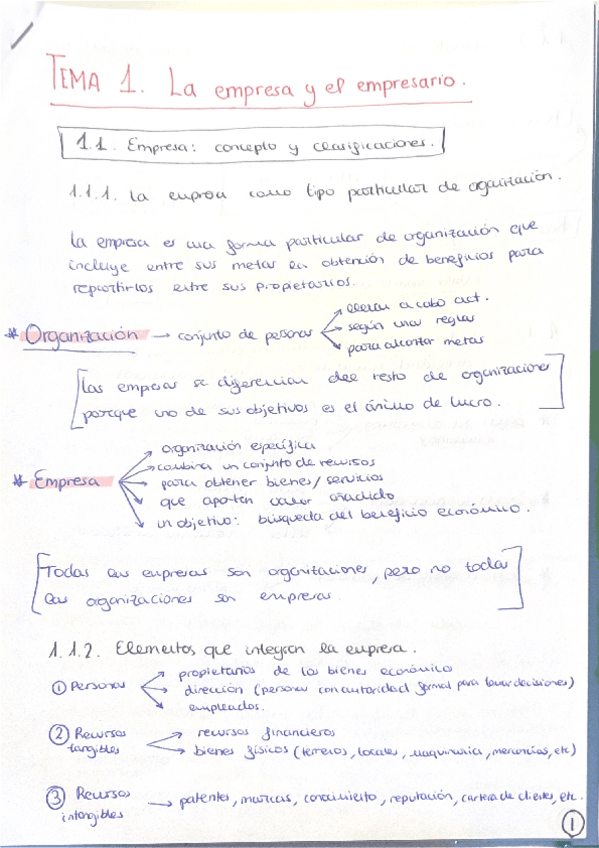 TEMA 1. La empresa y el empresario.
1.1. Empresa: concepto y clasificaciones.
1.1.1. La empresa como tipo particular de organización.
La empresa es una forma particular de organización que
incluye entre sus metas la obtención de beneficios para
repartirlos entre sus propietarios.
* Organización → conjunto de personas
llevan a cabo act.
según unas reglas
para alcanzar metas
[Las empresas se diferencian del resto de organizaciones
porque uno de sus objetivos es el ánimo de lucro.]
* Empresa
organización específica
combina un conjunto de recursos
para obtener bienes/servicios
que aporten valor añadido
un objetivo: búsqueda del beneficio económico.
[Todas las empresas son organizaciones, pero no todas
las organizaciones son empresas.]
1.1.2. Elementos que integran la empresa.
① Personas
propietarios de los bienes económicos
dirección (personas con autoridad formal para tomar decisiones)
empleados.
② Recursos
tangibles
recursos financieros
bienes físicos (terrenos, locales, maquinaria, mercancías, etc)
③ Recursos
intangibles
→ patentes, marcas, conocimiento, reputación, cartera de clientes, etc.
1